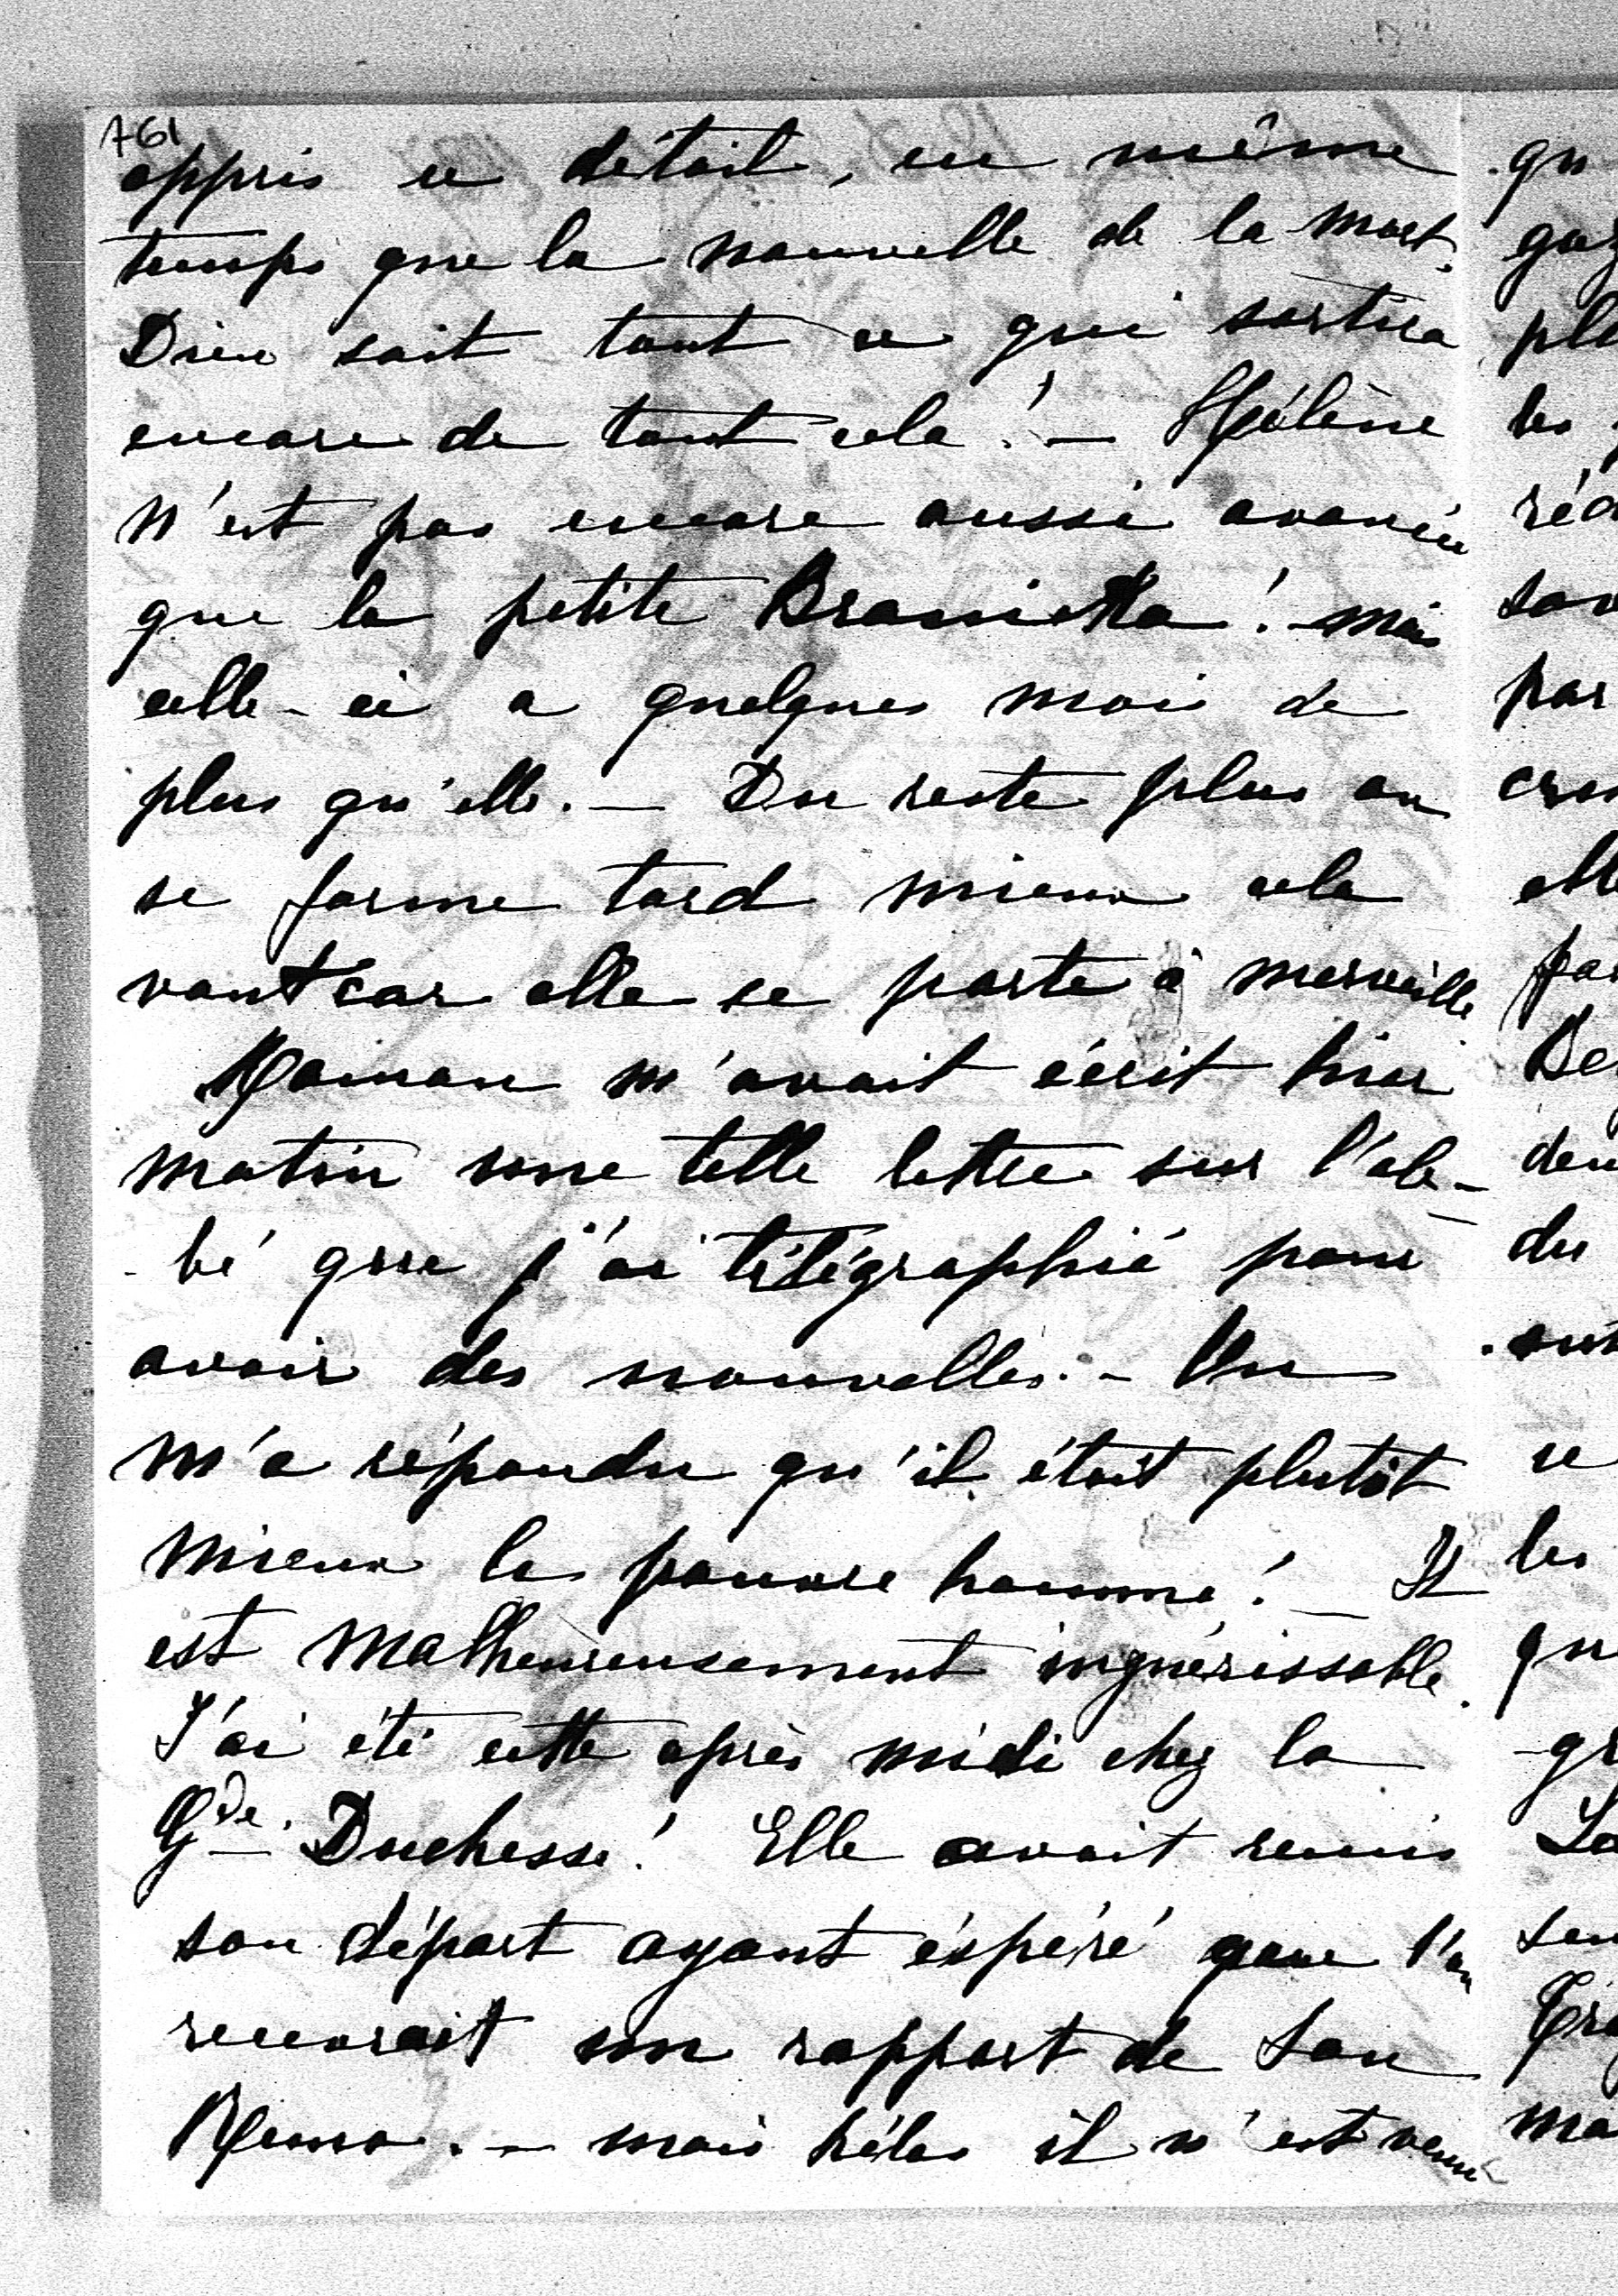 761
appris ce détail, en même
temps que la nouvelle de la mort.
Dieu sait tout ce qui sortira
encore de tout cela! — Hélène
n'est pas encore aussi avancée
que la petite Branicka! mais
celle-ci a quelques mois de
plus qu'elle. — Du reste plus on
se forme tard mieux cela
vaut car elle se porte à merveille
Maman m'avait écrit hier
matin une telle lettre sur l'ab-
-bé que j'ai télégraphié pour
avoir des nouvelles. — On
m'a répondu qu'il était plutôt
mieux le pauvre homme! — Il
est malheureusement inguérissable.
J'ai été cette après midi chez la
Gde. Duchesse! Elle avait remis
son départ ayant éspéré que l'on
recevrait un rapport de San
Remo. — mais hélas il n'est venu
qu
gaz
pl
les
réd
sav
par
croi
elle
par
De
deu
du
ce
les
que
-gr
La
sen
ma